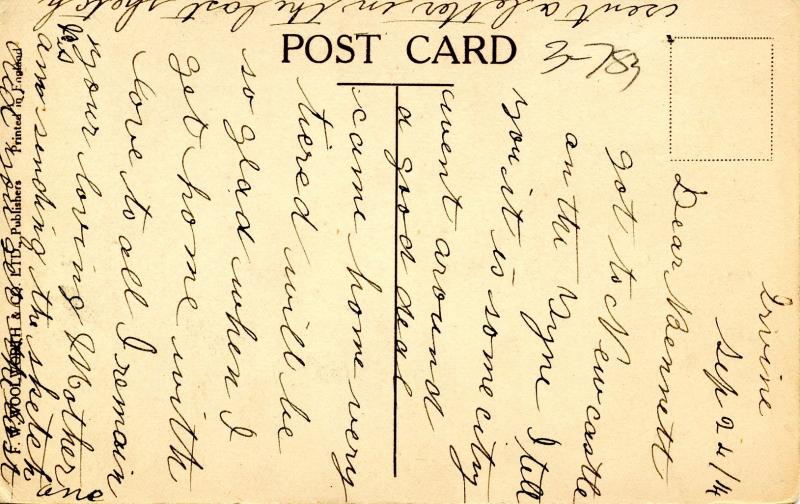 POST CARD
F. W. WOOLWORTH & CO. LTD. Publishers Printed in England
Irvine
Sep 24/14
Dear Bennett
got to Newcastle
on the Tyne I tell
you it is some city
went around
a good deal
came home very
tiered will be
so glad when I
get home with
love to all I remain
your loving Mother
ps
am sending the sketch
one
sent a letter in the last sketch